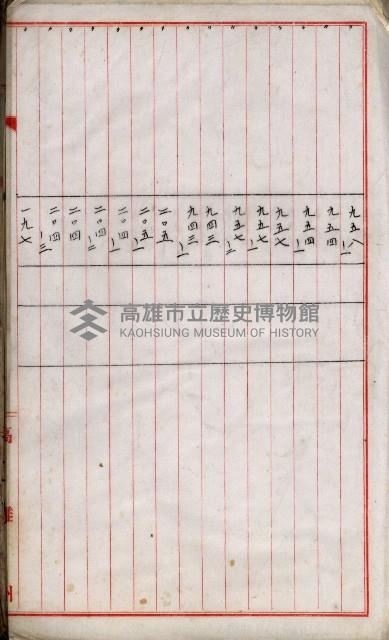 九五八ノ一
九五四
九五四ノ一
九五七
九五七ノ一
九五七ノ二
九四三
九四三ノ一
二〇五
二〇五ノ一
二〇四ノ一
二〇四ノ二
二〇四
二〇四ノ三
一九七
高雄市立歷史博物館
KAOHSIUNG MUSEUM OF HISTORY
高雄州